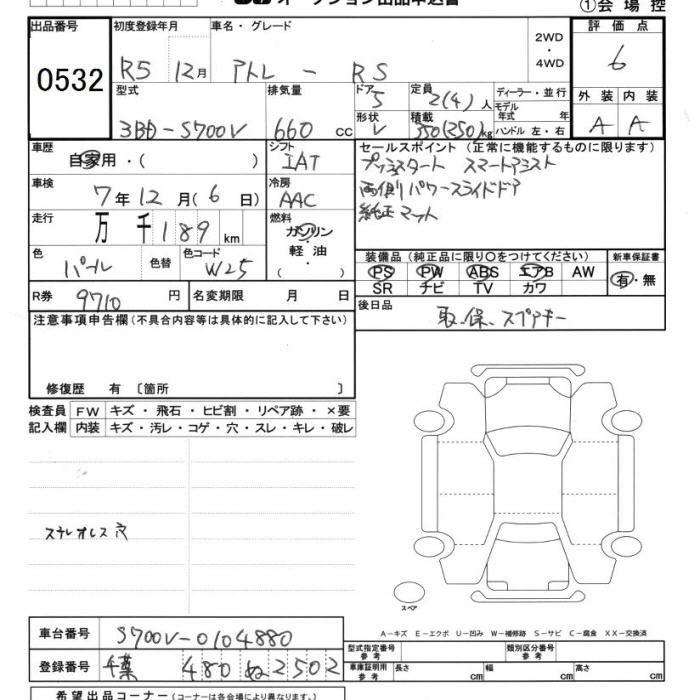 オークション出品申込書
①会場控
出品番号
0532
初度登録年月
R5 12月
車名・グレード
アトレー RS
2WD
・
4WD
評価点
6
型式
3BD-S700V
排気量
660 cc
ドア
5
形状
V
定員
2(4)人
積載
350(250)kg
ディーラー・並行
モデル年式 年
ハンドル 左・右
外装 内装
A A
車歴
自家用・( )
シフト
IAT
車検
7年12月(6日)
冷房
AAC
走行
万 千 189 km
燃料
ガソリン
軽・油
・( )
色
パール
色替
色コード
W25
R券
9710 円
名変期限 月 日
セールスポイント(正常に機能するものに限ります)
プッシュスタート スマートアシスト
両側パワースライドドア
純正マット
装備品(純正品に限り○をつけてください)
PS PW ABS エアB AW
SR チビ TV カワ
新車保証書
有・無
後日品
取.保.スプアキー
注意事項申告欄(不具合内容等は具体的に記入して下さい)
修復歴 有〔箇所 〕
検査員記入欄
FW キズ・飛石・ヒビ割・リペア跡・×要
内装 キズ・汚レ・コゲ・穴・スレ・キレ・破レ
ステレオレス 穴
スペア
A-キズ E-エクボ U-凹み W-補修跡 S-サビ C-腐食 XX-交換済
車台番号
S700V-0104880
登録番号
千葉 480 ぬ 2502
型式指定番号参考
類別区分番号参考
車庫証明用参考
長さ cm
幅 cm
高さ cm
希望出品コーナー(コーナーは各会場により異なります。)